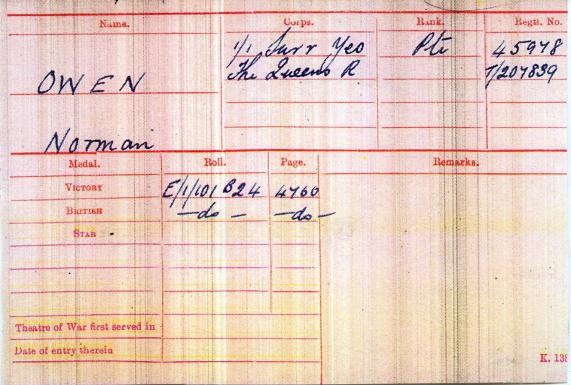 Name. Corps. Rank. Regtl. No.
1/1 Surr Yeo Pte 45978
OWEN The Queens R T/207839
Norman
Medal. Roll. Page. Remarks.
VICTORY E/1/101 B24 4760
BRITISH —do— —do—
STAR
Theatre of War first served in
Date of entry therein
K. 138